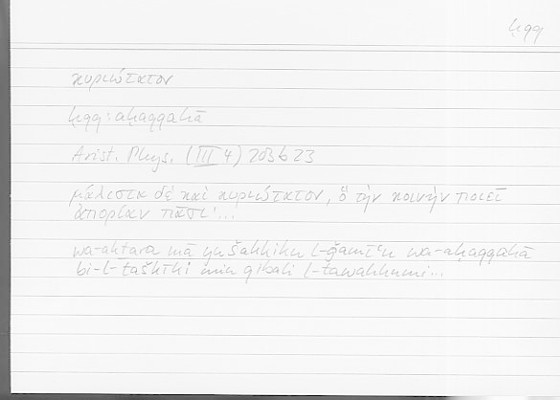 ḥqq
κυριώτατον
ḥqq: aḥaqqahā
Arist. Phys. (III 4) 203b23
μάλιστα δὲ καὶ κυριώτατον, ὃ τὴν κοινὴν ποιεῖ
ἀπορίαν πᾶσι· ...
wa-akṯara mā yušakkiku l-ǧamīʿa wa-aḥaqqahā
bi-t-taškīki min qibali t-tawahhumi...